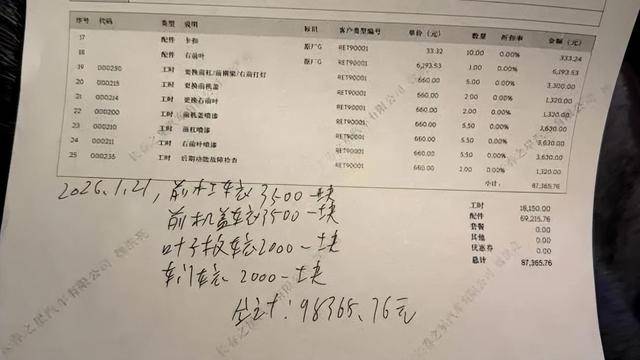 序号 代码 类型 说明 标识 客户类型编号 单价(元) 数量 折扣率 金额(元)
17 配件 卡扣 原厂G RET90001 33.32 10.00 0.00% 333.24
18 配件 右前叶 原厂G RET90001 6,293.53 1.00 0.00% 6,293.53
19 000250 工时 更换前杠/前横梁/右前灯 RET90001 660.00 5.00 0.00% 3,300.00
20 000215 工时 更换前机盖 RET90001 660.00 2.00 0.00% 1,320.00
21 000214 工时 更换右前叶 RET90001 660.00 2.00 0.00% 1,320.00
22 000200 工时 前机盖喷漆 RET90001 660.00 5.50 0.00% 3,630.00
23 000210 工时 前杠喷漆 RET90001 660.00 5.50 0.00% 3,630.00
24 000211 工时 右前叶喷漆 RET90001 660.00 5.50 0.00% 3,630.00
25 000235 工时 后期功能故障检查 RET90001 660.00 2.00 0.00% 1,320.00
小计: 87,365.76
工时 18,150.00
配件 69,215.76
套餐 0.00
其他 0.00
优惠券 0.00
总计 87,365.76
2026.1.21,前杠车衣3500一块
前机盖车衣3500一块
叶子板车衣2000一块
车门车衣2000一块
全计:98365.76元